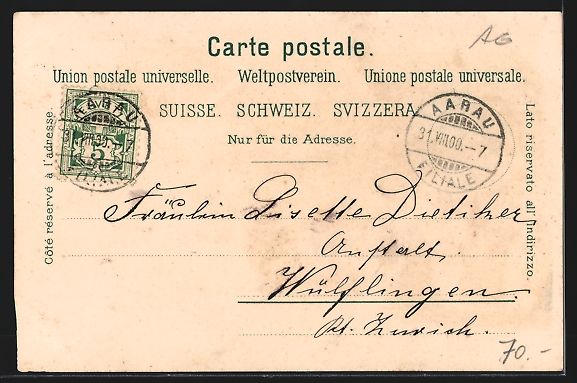 AG
Carte postale.
Union postale universelle. Weltpostverein. Unione postale universale.
SUISSE. SCHWEIZ. SVIZZERA
Nur für die Adresse.
Côté réservé à l'adresse.
Lato riservato all' indirizzo.
AARAU
5
AARAU
31.VIII.00.-7
FILIALE
Fräulein Lisette Dietiker
Anstalt
Wülflingen.
Kt. Zürich.
70.-